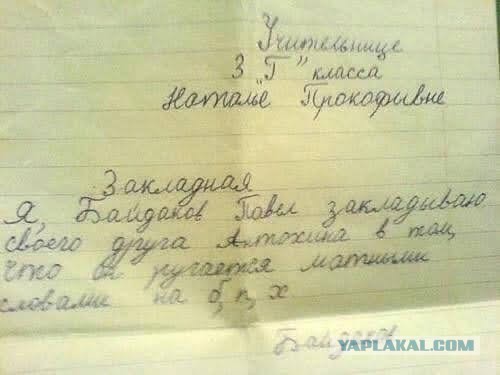 Учительнице
3 "Г" класса
Наталье Прокофивне
Закладная
Я, Байдаков Павел закладываю
своего друга Антохина в том,
что он ругается матными
словами на б, п, х
Байдаков
YAPLAKAL.COM